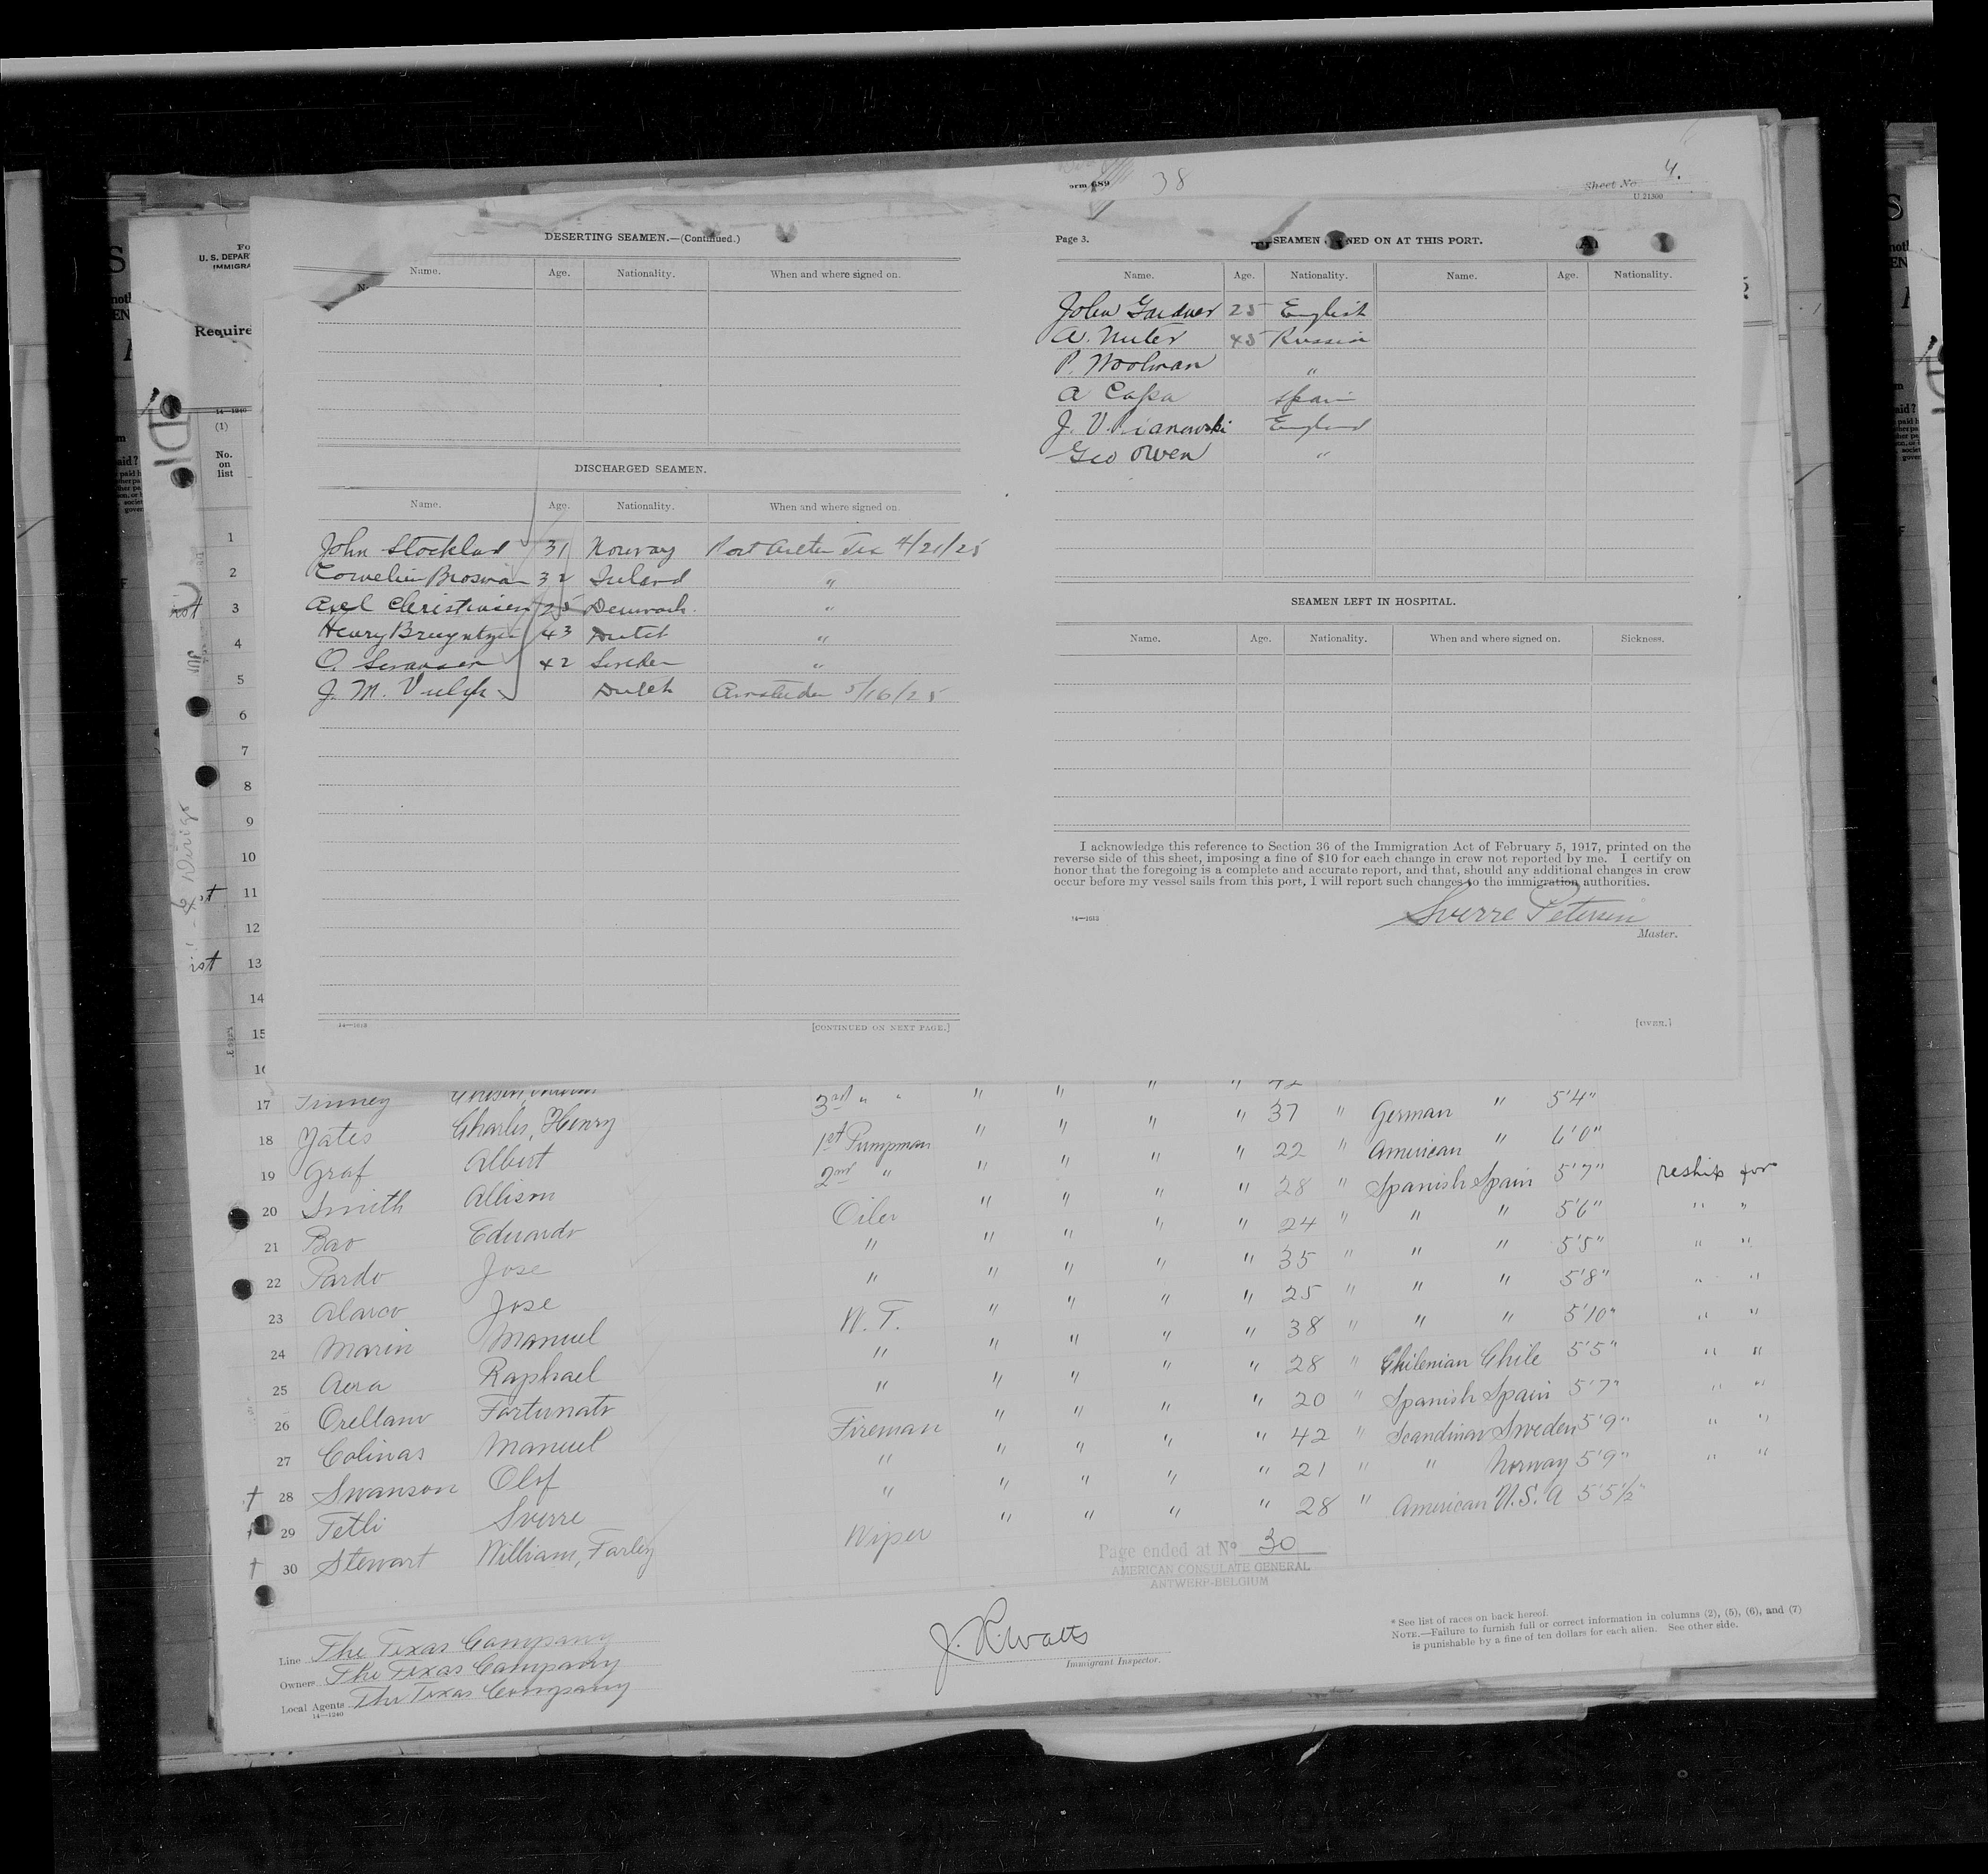 38
Sheet No 4.
U 21300
DESERTING SEAMEN.—(Continued.)
Name. Age. Nationality. When and where signed on.
DISCHARGED SEAMEN.
Name. Age. Nationality. When and where signed on.
John 31 Norway Port 4/21/25
32 Ireland "
Axel Christensen 25 Denmark "
Henry 43 Dutch "
O. Swanson 42 Sweden "
J. M. Dutch Amsterdam 5/16/25
14—1613 [CONTINUED ON NEXT PAGE.]
Page 3. SEAMEN NED ON AT THIS PORT.
Name. Age. Nationality. Name. Age. Nationality.
John 25 English
A. 45 Russia
P. Woolman "
A Spain
J. V. England
Geo Owen "
SEAMEN LEFT IN HOSPITAL.
Name. Age. Nationality. When and where signed on. Sickness.
I acknowledge this reference to Section 36 of the Immigration Act of February 5, 1917, printed on the
reverse side of this sheet, imposing a fine of $10 for each change in crew not reported by me. I certify on
honor that the foregoing is a complete and accurate report, and that, should any additional changes in crew
occur before my vessel sails from this port, I will report such changes to the immigration authorities.
14—1613
Sverre Petersen
Master.
[OVER.]
U. S. DEPAR
IMMIGRA
Require
14—1240
(1)
No.
on
list
1
2
3
4
5
6
7
8
9
10
11
12
13
14
15
17 Finney 3rd " " " " " "
18 Yates Charles, Henry 1st Pumpman " " " " 37 " German " 5'4"
19 Graf Albert 2nd " " " " " 22 " American " 6'0"
20 Smith Allison Oiler " " " " 28 " Spanish Spain 5'7" reship for
21 Bao Eduardo " " " " " 24 " " " 5'6" " "
22 Pardo Jose " " " " " 35 " " " 5'5" " "
23 Alarco Jose W. T. " " " " 25 " " " 5'8" " "
24 Marin Manuel " " " " " 38 " " " 5'10" " "
25 Raphael " " " " " 28 " Chilenian Chile 5'5" " "
26 Orellano Fortunato Fireman " " " " 20 " Spanish Spain 5'7" " "
27 Colinas Manuel " " " " " 42 " Scandinav Sweden 5'9" " "
28 Swanson Olof " " " " " 21 " " Norway 5'9" " "
29 Tetli Sverre Wiper " " " " 28 " American U.S.A 5'5½"
30 Stewart William, Farley
Page ended at No 30
AMERICAN CONSULATE GENERAL
ANTWERP-BELGIUM
Line The Texas Company
Owners The Texas Company
Local Agents The Texas Company
14—1240
J. R. Watts
Immigrant Inspector.
* See list of races on back hereof.
NOTE.—Failure to furnish full or correct information in columns (2), (5), (6), and (7)
is punishable by a fine of ten dollars for each alien. See other side.